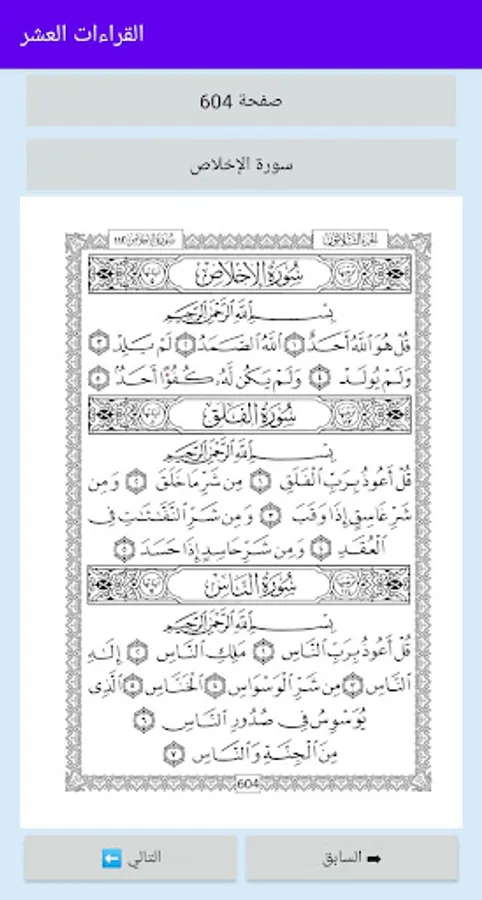 القراءات العشر
صفحة 604
سورة الإخلاص
الجزء الثلاثون سورة الإخلاص ١١٢
سُورَةُ الإِخْلَاصِ
بِسْمِ اللَّهِ الرَّحْمَٰنِ الرَّحِيمِ
قُلْ هُوَ اللَّهُ أَحَدٌ ١ اللَّهُ الصَّمَدُ ٢ لَمْ يَلِدْ ٣
وَلَمْ يُولَدْ ٤ وَلَمْ يَكُن لَّهُ كُفُؤًا أَحَدٌ ٥
سُورَةُ الفَلَقِ
بِسْمِ اللَّهِ الرَّحْمَٰنِ الرَّحِيمِ
قُلْ أَعُوذُ بِرَبِّ الْفَلَقِ ١ مِن شَرِّ مَا خَلَقَ ٢ وَمِن
شَرِّ غَاسِقٍ إِذَا وَقَبَ ٣ وَمِن شَرِّ النَّفَّٰثَٰتِ فِي
الْعُقَدِ ٤ وَمِن شَرِّ حَاسِدٍ إِذَا حَسَدَ ٥
سُورَةُ النَّاسِ
بِسْمِ اللَّهِ الرَّحْمَٰنِ الرَّحِيمِ
قُلْ أَعُوذُ بِرَبِّ النَّاسِ ١ مَلِكِ النَّاسِ ٢ إِلَٰهِ
النَّاسِ ٣ مِن شَرِّ الْوَسْوَاسِ ٤ الْخَنَّاسِ ٥ الَّذِي
يُوَسْوِسُ فِي صُدُورِ النَّاسِ ٦
مِنَ الْجِنَّةِ وَالنَّاسِ ٧
604
➡ السابق
التالي ⬅